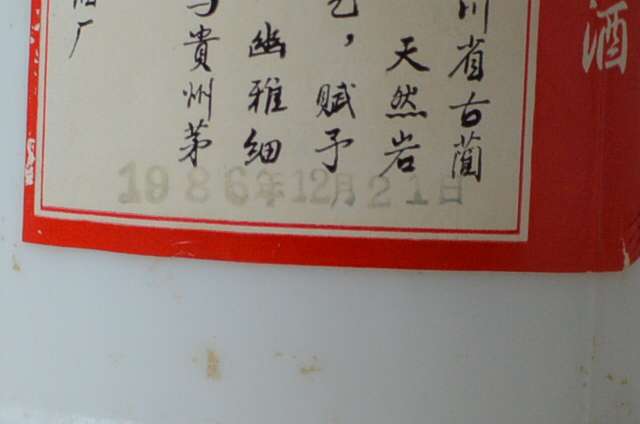 酒
川省古蔺
天然岩
艺，赋予
幽雅细
与貴州茅
酒厂
1986年12月21日